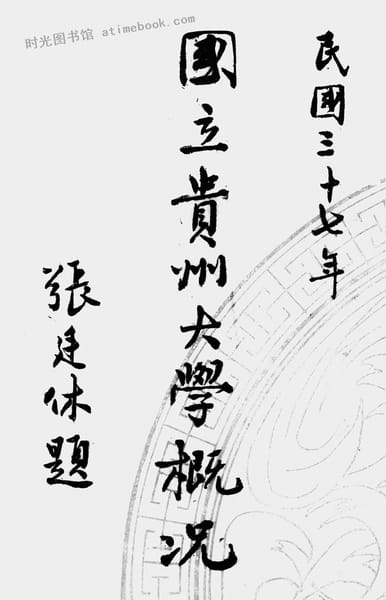 时光图书馆 atimebook.com
民國三十七年
國立貴州大學概况
張廷休題